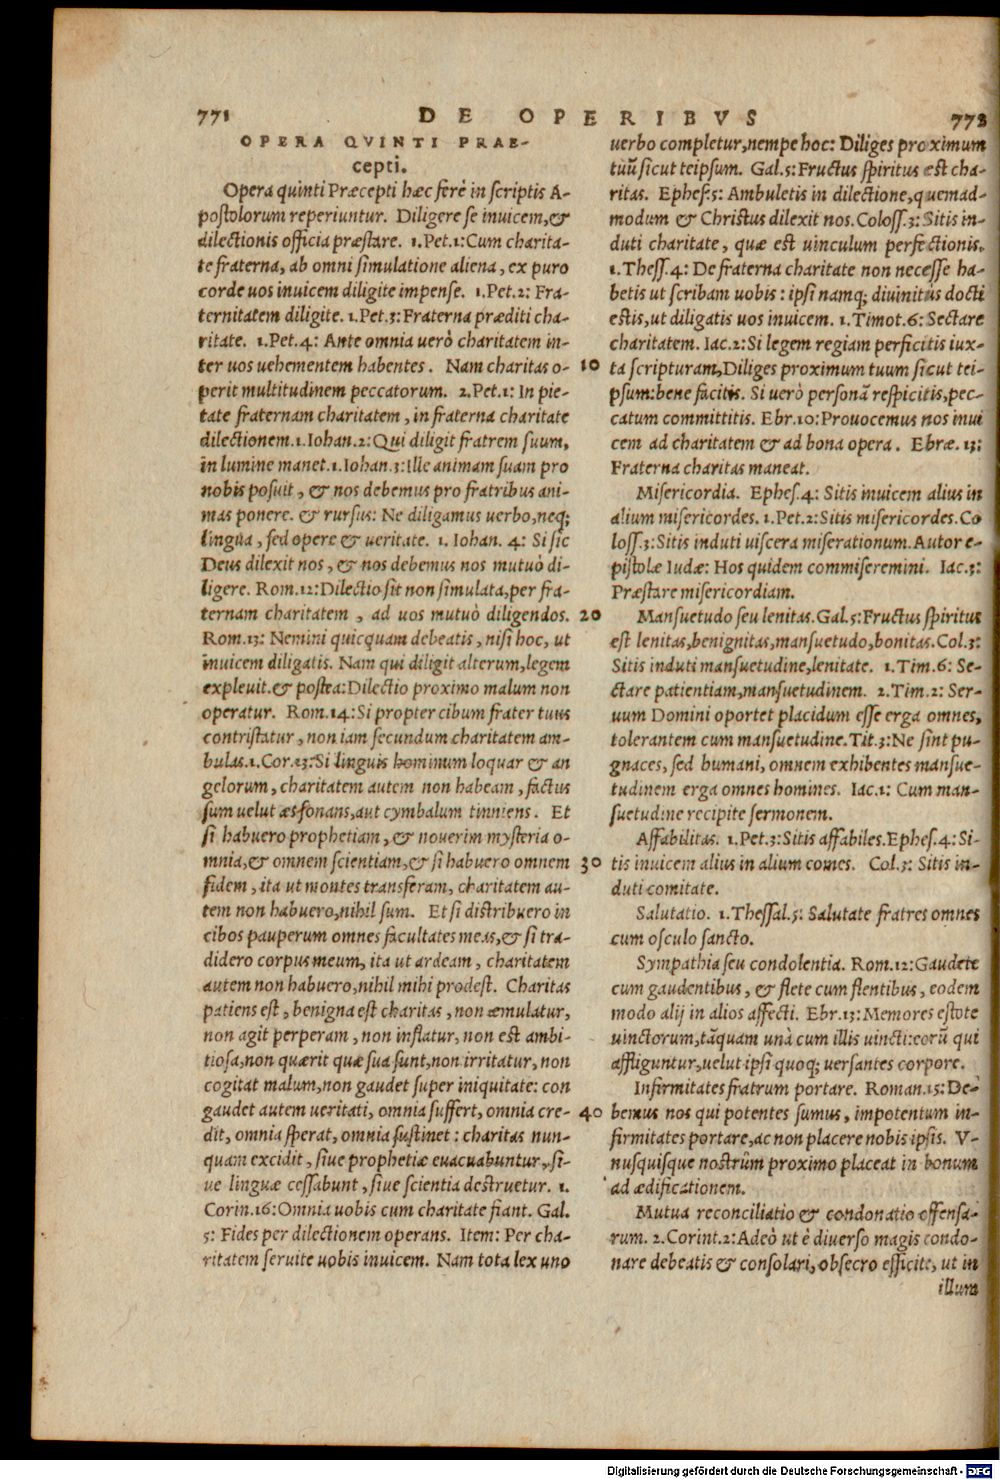 771 DE OPERIBVS 772
OPERA QVINTI PRAE-
cepti.
Opera quinti Præcepti hæc ferè in scriptis A-
postolorum reperiuntur. Diligere se inuicem, &
dilectionis officia præstare. 1.Pet.1: Cum charita-
te fraterna, ab omni simulatione aliena, ex puro
corde uos inuicem diligite impense. 1.Pet.2: Fra-
ternitatem diligite. 1.Pet.3: Fraterna præditi cha-
ritate. 1.Pet.4: Ante omnia uerò charitatem in-
ter uos uehementem habentes. Nam charitas o-
perit multitudinem peccatorum. 2.Pet.1: In pie-
tate fraternam charitatem, in fraterna charitate
dilectionem. 1.Iohan.2: Qui diligit fratrem suum,
in lumine manet. 1.Iohan.3: Ille animam suam pro
nobis posuit, & nos debemus pro fratribus ani-
mas ponere. & rursus: Ne diligamus uerbo, neq;
lingua, sed opere & ueritate. 1. Iohan. 4: Si sic
Deus dilexit nos, & nos debemus nos mutuò di-
ligere. Rom.12: Dilectio sit non simulata, per fra-
ternam charitatem, ad uos mutuò diligendos.
Rom.13: Nemini quicquam debeatis, nisi hoc, ut
inuicem diligatis. Nam qui diligit alterum, legem
expleuit. & postea: Dilectio proximo malum non
operatur. Rom.14: Si propter cibum frater tuus
contristatur, non iam secundum charitatem am-
bulas. 1.Cor.13: Si linguis hominum loquar & an
gelorum, charitatem autem non habeam, factus
sum uelut æs sonans, aut cymbalum tinniens. Et
si habuero prophetiam, & nouerim mysteria o-
mnia, & omnem scientiam, & si habuero omnem
fidem, ita ut montes transferam, charitatem au-
tem non habuero, nihil sum. Et si distribuero in
cibos pauperum omnes facultates meas, & si tra-
didero corpus meum, ita ut ardeam, charitatem
autem non habuero, nihil mihi prodest. Charitas
patiens est, benigna est charitas, non æmulatur,
non agit perperam, non inflatur, non est ambi-
tiosa, non quærit quæ sua sunt, non irritatur, non
cogitat malum, non gaudet super iniquitate: con
gaudet autem ueritati, omnia suffert, omnia cre-
dit, omnia sperat, omnia sustinet: charitas nun-
quam excidit, siue prophetiæ euacuabuntur, si-
ue linguæ cessabunt, siue scientia destruetur. 1.
Corin.16: Omnia uobis cum charitate fiant. Gal.
5: Fides per dilectionem operans. Item: Per cha-
ritatem seruite uobis inuicem. Nam tota lex uno
10
20
30
40
uerbo completur, nempe hoc: Diliges proximum
tuũ sicut teipsum. Gal.5: Fructus spiritus est cha-
ritas. Ephes.5: Ambuletis in dilectione, quemad-
modum & Christus dilexit nos. Coloss.3: Sitis in-
duti charitate, quæ est uinculum perfectionis.
1.Thess.4: De fraterna charitate non necesse ha-
betis ut scribam uobis: ipsi namq; diuinitùs docti
estis, ut diligatis uos inuicem. 1.Timot.6: Sectare
charitatem. Iac.2: Si legem regiam perficitis iux-
ta scripturam, Diliges proximum tuum sicut tei-
psum: bene facitis. Si uerò personã respicitis, pec-
catum committitis. Ebr.10: Prouocemus nos inui
cem ad charitatem & ad bona opera. Ebræ. 13:
Fraterna charitas maneat.
Misericordia. Ephes.4: Sitis inuicem alius in
alium misericordes. 1.Pet.2: Sitis misericordes. Co
loss.3: Sitis induti uiscera miserationum. Autor e-
pistolæ Iudæ: Hos quidem commiseremini. Iac.3:
Præstare misericordiam.
Mansuetudo seu lenitas. Gal.5: Fructus spiritus
est lenitas, benignitas, mansuetudo, bonitas. Col.3:
Sitis induti mansuetudine, lenitate. 1.Tim.6: Se-
ctare patientiam, mansuetudinem. 2.Tim.2: Ser-
uum Domini oportet placidum esse erga omnes,
tolerantem cum mansuetudine. Tit.3: Ne sint pu-
gnaces, sed humani, omnem exhibentes mansue-
tudinem erga omnes homines. Iac.1: Cum man-
suetudine recipite sermonem.
Affabilitas. 1.Pet.3: Sitis affabiles. Ephes.4: Si-
tis inuicem alius in alium comes. Col.3: Sitis in-
duti comitate.
Salutatio. 1.Thessal.5: Salutate fratres omnes
cum osculo sancto.
Sympathia seu condolentia. Rom.12: Gaudete
cum gaudentibus, & flete cum flentibus, eodem
modo alij in alios affecti. Ebr.13: Memores estote
uinctorum, tãquam unà cum illis uincti: eorũ qui
affliguntur, uelut ipsi quoq; uersantes corpore.
Infirmitates fratrum portare. Roman.15: De-
bemus nos qui potentes sumus, impotentum in-
firmitates portare, ac non placere nobis ipsis. V-
nusquisque nostrûm proximo placeat in bonum
ad ædificationem.
Mutua reconciliatio & condonatio offensa-
rum. 2.Corint.2: Adeò ut è diuerso magis condo-
nare debeatis & consolari, obsecro efficite, ut in
illum
Digitalisierung gefördert durch die Deutsche Forschungsgemeinschaft - DFG